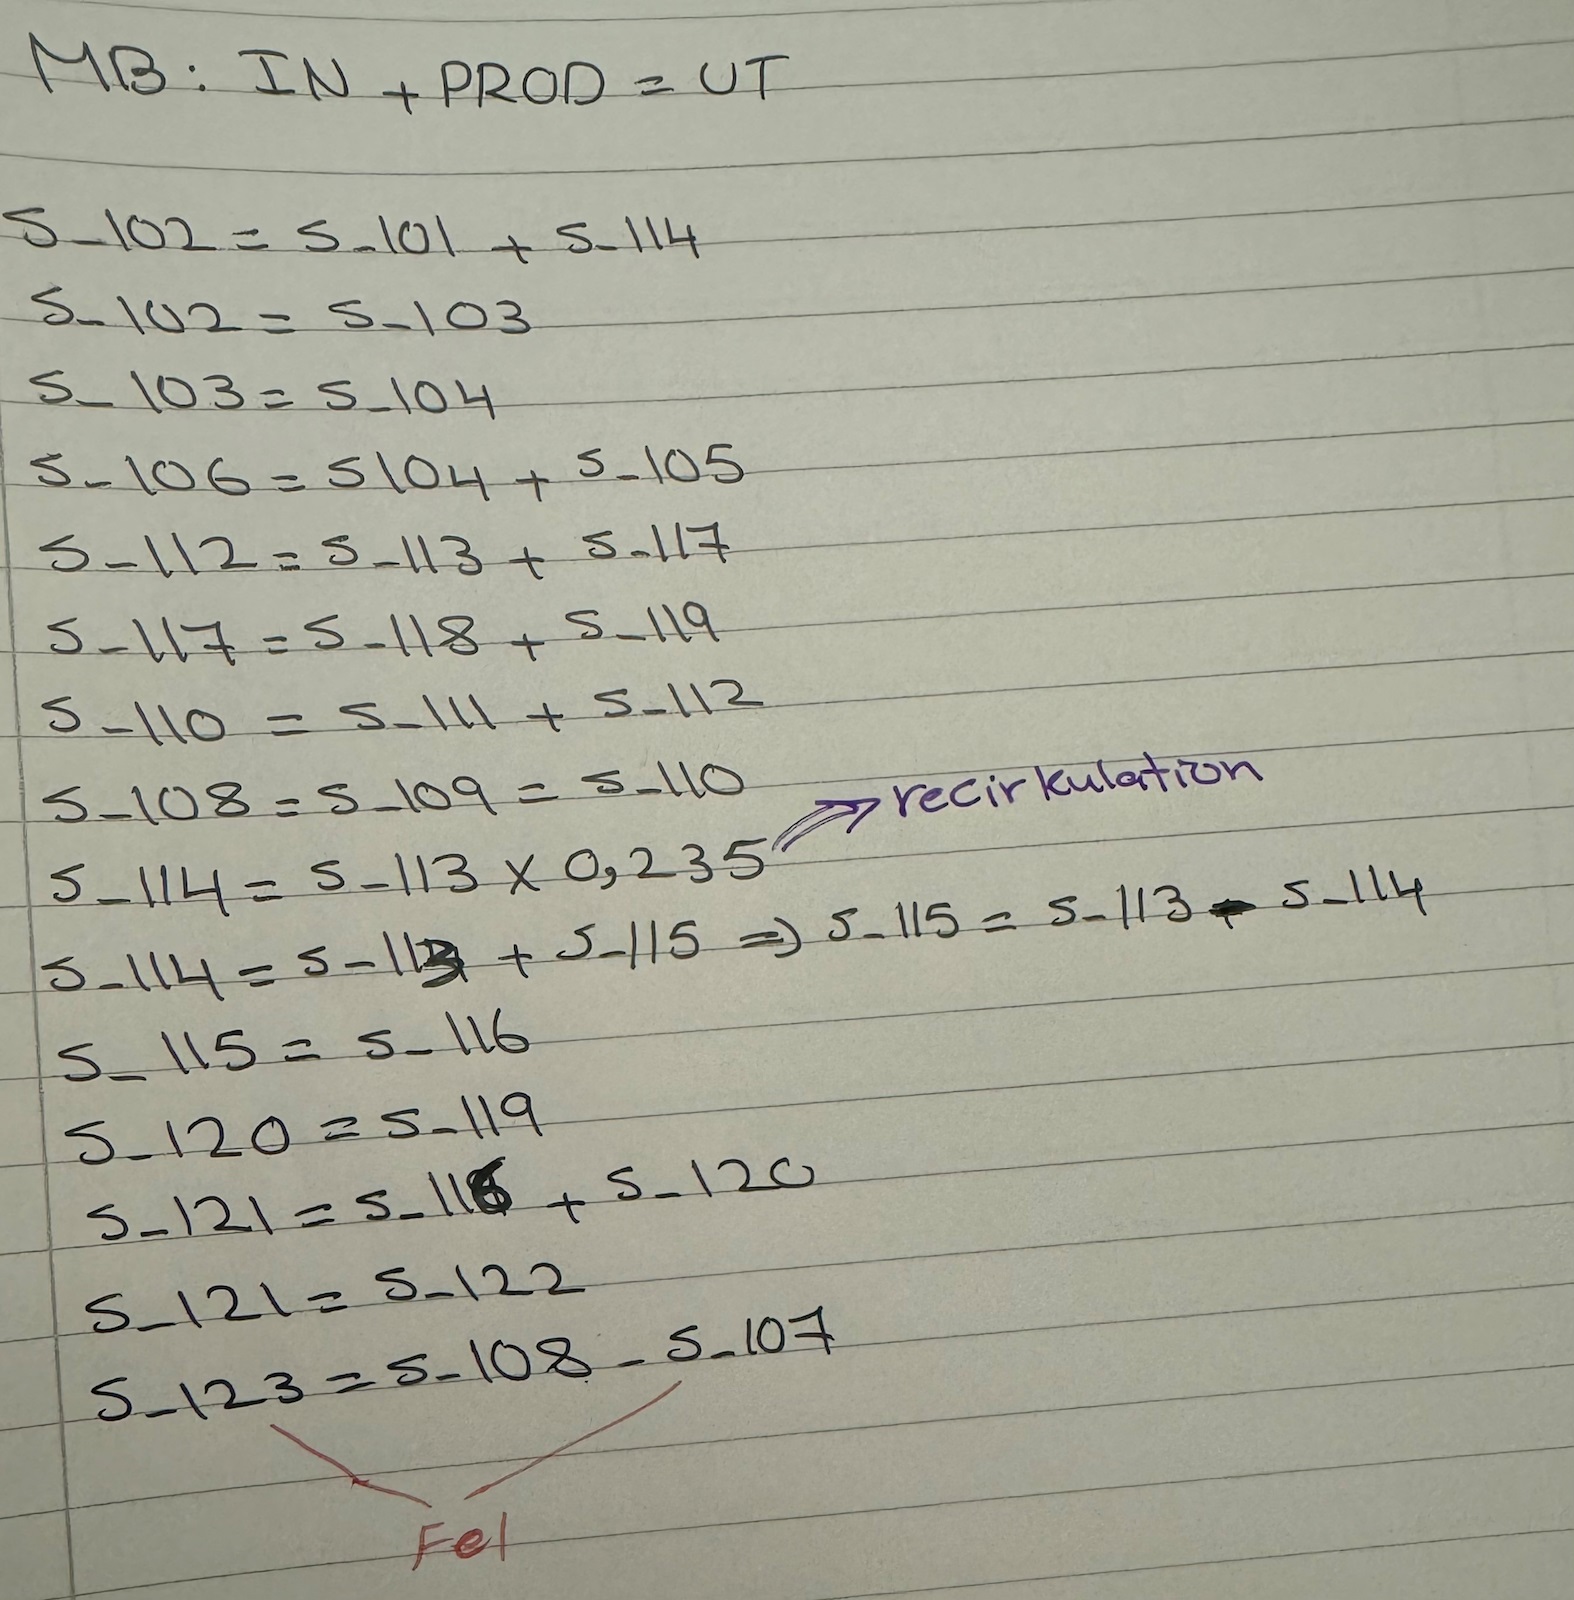 MB: IN + PROD = UT
S-102 = S-101 + S-114
S-102 = S-103
S-103 = S-104
S-106 = S104 + S-105
S-112 = S-113 + S-117
S-117 = S-118 + S-119
S-110 = S-111 + S-112
S-108 = S-109 = S-110
recirkulation
S-114 = S-113 x 0,235
S-114 = S-113 + S-115 => S-115 = S-113 - S-114
S-115 = S-116
S-120 = S-119
S-121 = S-116 + S-120
S-121 = S-122
S-123 = S-108 - S-107
Fel